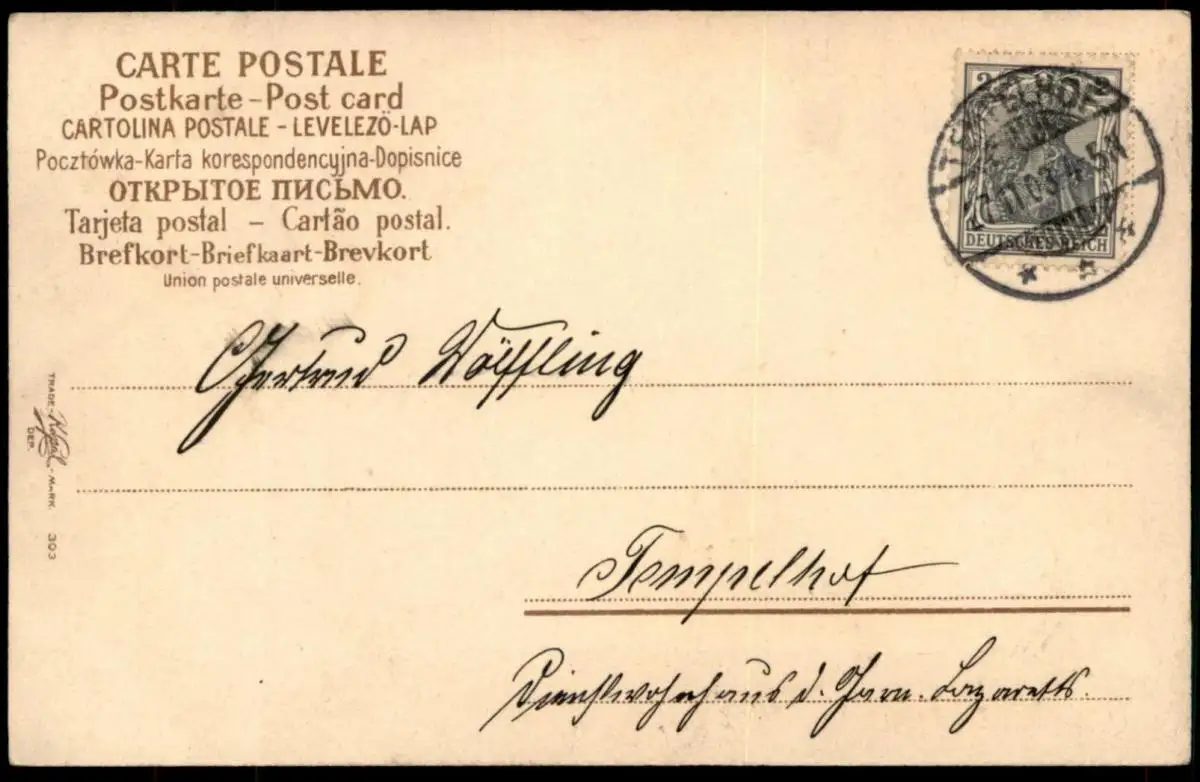 CARTE POSTALE
Postkarte - Post card
CARTOLINA POSTALE - LEVELEZŐ-LAP
Pocztówka-Karta korespondencyjna-Dopisnice
ОТКРЫТОЕ ПИСЬМО.
Tarjeta postal - Cartão postal.
Brefkort-Briefkaart-Brevkort
Union postale universelle.
TEMPELHOF
7.11.03.4-5N
DEUTSCHES REICH
Gertrud Wölffling
TRADE - MARK
DEP.
303
Tempelhof
Dienstwohnhaus d. Garn. Lazaretts.